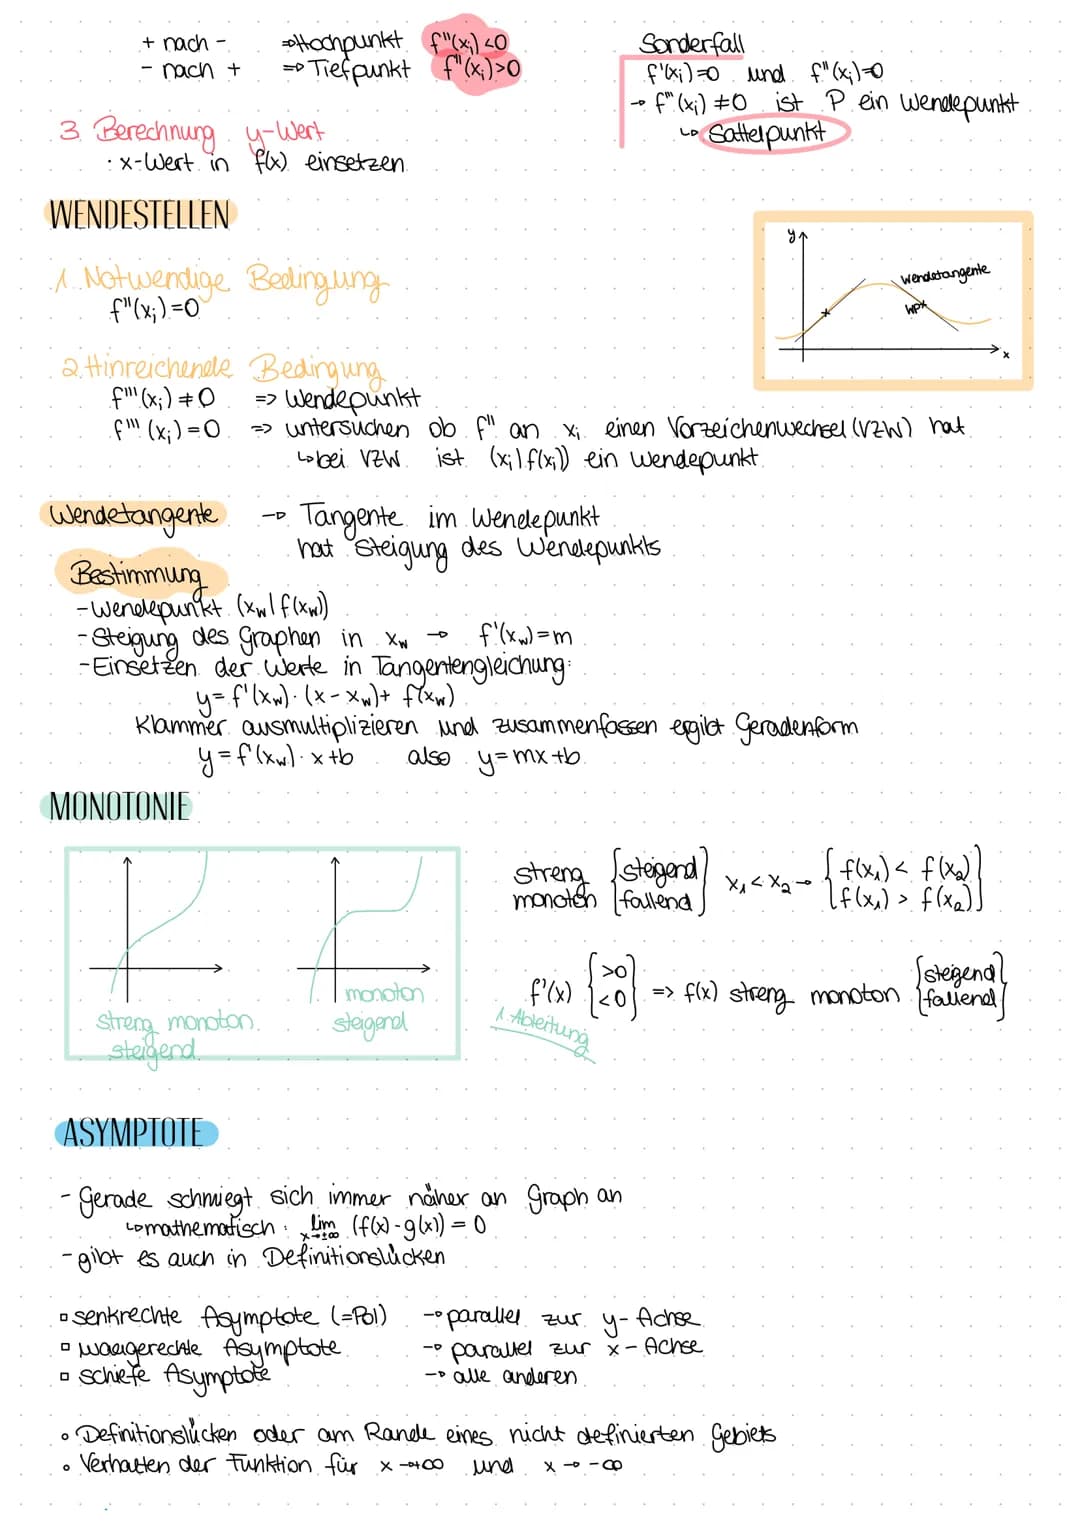 + nach - ⇒ Hochpunkt f''(xᵢ) <0
- nach + ⇒ Tiefpunkt f''(xᵢ)>0
Sonderfall
f'(xᵢ)=0 und f''(xᵢ)=0
→ f'''(xᵢ) ≠0 ist P ein Wendepunkt
↳ Sattelpunkt
3. Berechnung y-Wert
· x-Wert in f(x) einsetzen
WENDESTELLEN
1. Notwendige Bedingung
f''(xᵢ)=0
y
Wendetangente
WPkt
x
2. Hinreichende Bedingung
f'''(xᵢ) ≠ 0 => Wendepunkt
f'''(xᵢ) = 0 => untersuchen ob f'' an xᵢ einen Vorzeichenwechsel (VZW) hat
↳ bei VZW ist (xᵢ|f(xᵢ)) ein Wendepunkt
Wendetangente → Tangente im Wendepunkt
hat Steigung des Wendepunkts
Bestimmung
- Wendepunkt (x_w|f(x_w))
- Steigung des Graphen in x_w → f'(x_w)=m
- Einsetzen der Werte in Tangentengleichung:
y= f'(x_w)·(x-x_w)+ f(x_w)
Klammer ausmultiplizieren und zusammenfassen ergibt Geradenform
y=f'(x_w)·x+b also y=mx+b
MONOTONIE
streng monoton steigend
monoton steigend
streng monoton {steigend fallend} x₁<x₂ → {f(x₁) < f(x₂) f(x₁) > f(x₂)}
f'(x) {>0 <0} => f(x) streng monoton {steigend fallend}
1. Ableitung
ASYMPTOTE
- Gerade schmiegt sich immer näher an Graph an
↳ mathematisch: lim x→±∞ (f(x)-g(x)) = 0
- gibt es auch in Definitionslücken
▫ senkrechte Asymptote (=Pol) → parallel zur y-Achse
▫ waagerechte Asymptote → parallel zur x-Achse
▫ schiefe Asymptote → alle anderen
∘ Definitionslücken oder am Rande eines nicht definierten Gebiets
∘ Verhalten der Funktion für x→+∞ und x→-∞